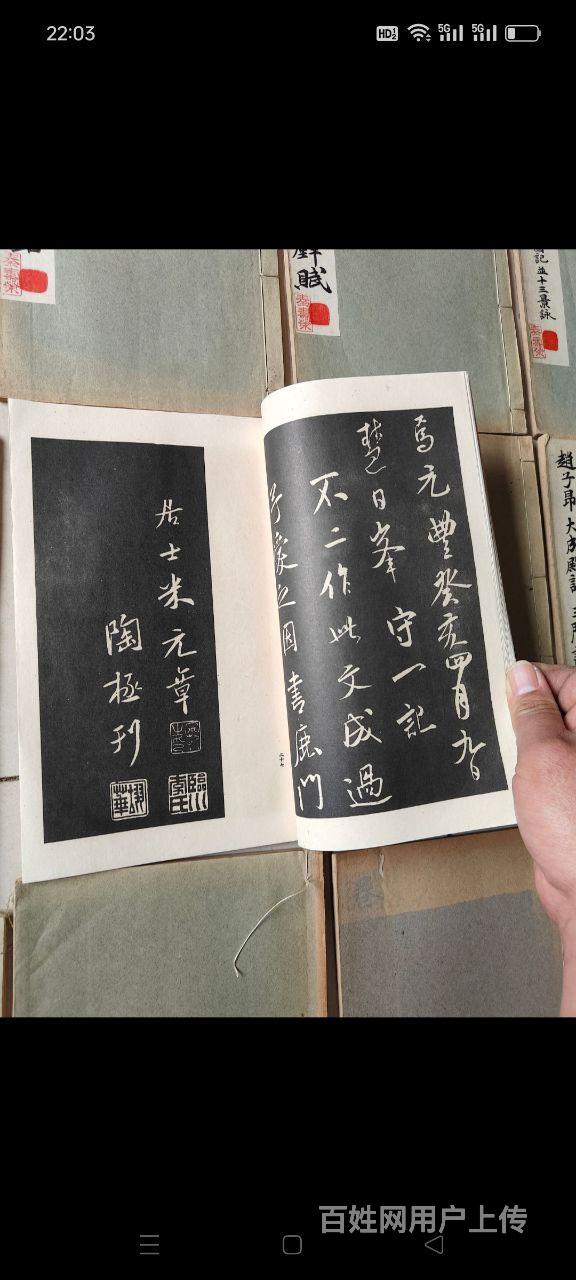 22:03
HD 5G 5G
賦
記並十三景詠
趙子昂大成殿記
焉元豐癸亥四月九日
慧日峯守一記
不二作此文成過
予愛之因書鹿門
居士米元章
陶拯刊
二十七
百姓网用户上传